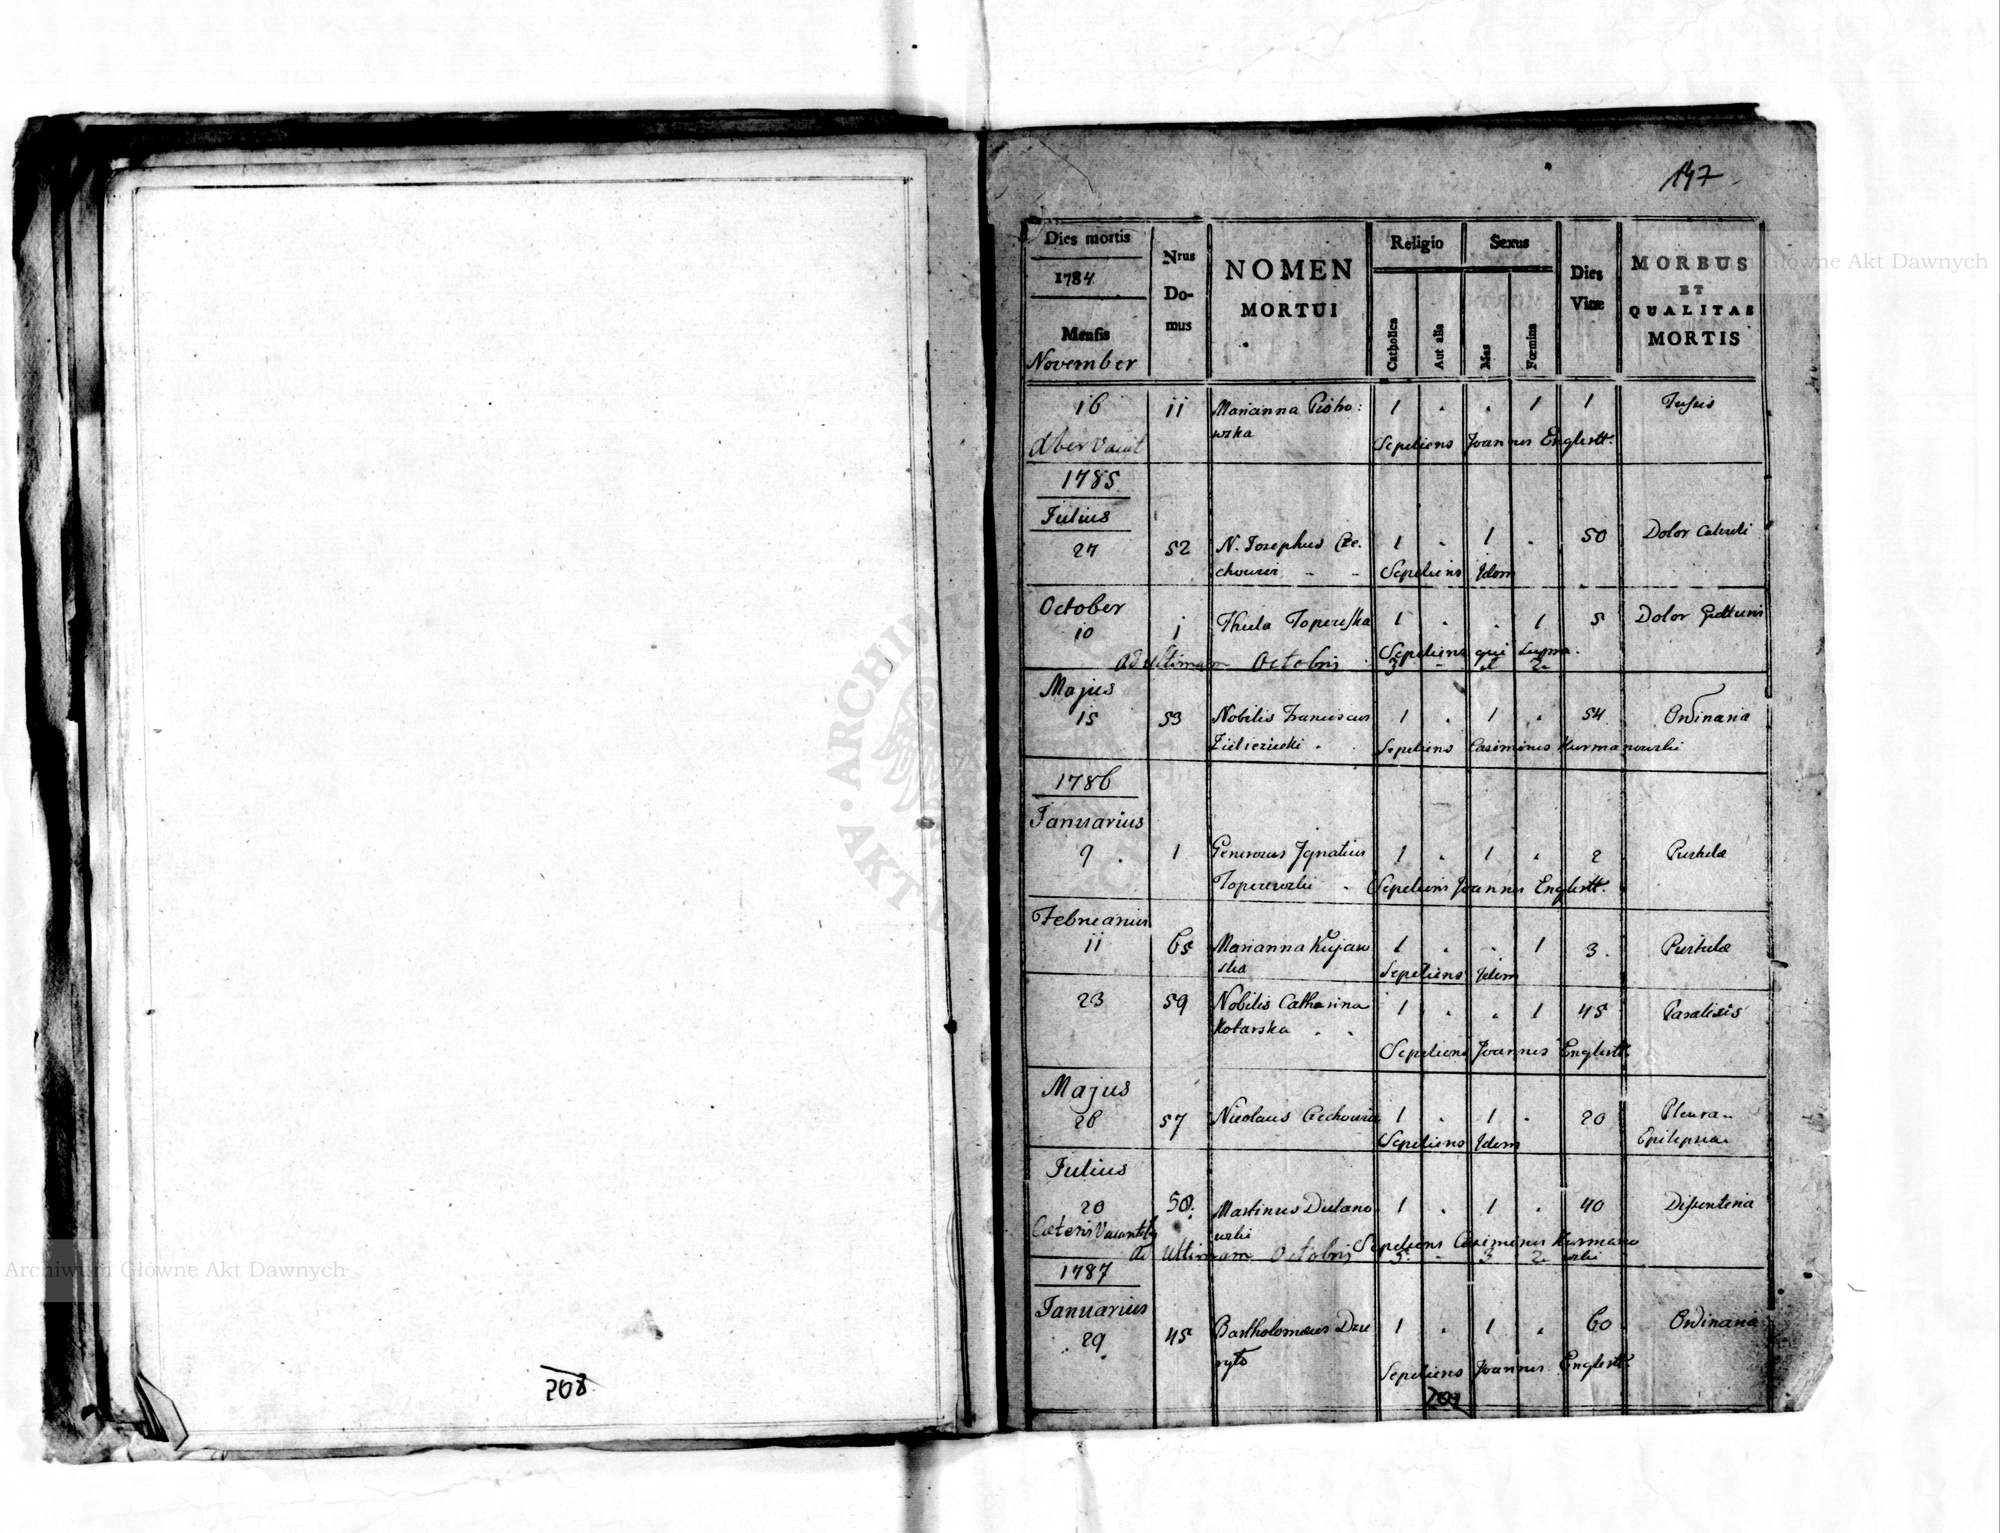 147
Dies mortis
1784
Mensis
November
Nrus
Do-
mus
NOMEN
MORTUI
Religio
Catholica
Aut alia
Sexus
Mas
Fœmina
Dies
Vitæ
MORBUS
ET
QUALITAS
MORTIS
16 11 Marianna 1 . . 1 1 Tussis
wska
Sepeliens Joannes Englertt.
1785
Julius
27 52 N. Josephus Cze- 1 . 1 . 50 Dolor Calculi
chowicz - - Sepeliens Idem
October
10 1 Thecla Toperska 1 . . 1 5 Dolor Gutturis
Sepeliens qui supra.
ad ultimam Octobris 3 - 1 2
Majus
15 53 Nobilis Franciscus 1 . 1 . 54 Ordinaria
Sepeliens Casimirus Kurmanowski
1786
Januarius
9 . 1 Generosus Ignatius 1 . 1 . 2 Pustulæ
Toperewski . Sepeliens Joannes Englertt.
Februarius
11 65 Marianna Kujaw 1 . . 1 3 . Pustulæ
ska Sepeliens Idem
23 59 Nobilis Catharina 1 . . 1 45 Paralisis
Kotarska . .
Sepeliens Joannes Englertt.
Majus
28 57 Nicolaus Czechowicz 1 . 1 . 20 Pleura
Sepeliens Idem Epilepsia
Julius
20 50. Martinus Dulano 1 . 1 . 40 Dissenteria
wski
Cæteris Vacantib Sepeliens Casimirus Kurmano
ad Ultimam Octobris 5 - 3 2 wski
1787
Januarius
29 45 Bartholomæus Dzu 1 . 1 . 60 Ordinaria
ryto
Sepeliens Joannes Englertt.
208
Archiwum Główne Akt Dawnych
Archiwum Główne Akt Dawnych